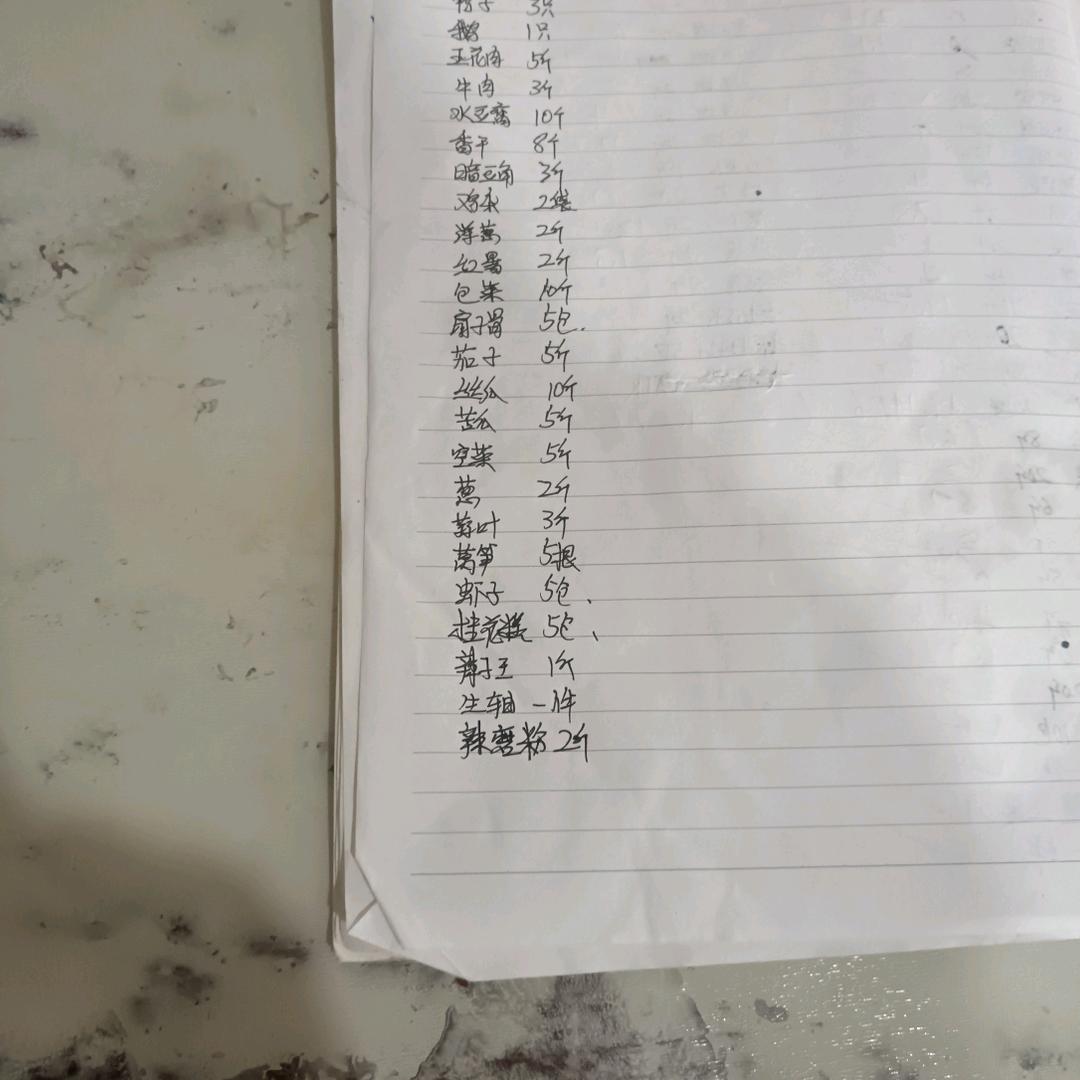 3只
鹅 1只
五花肉 5斤
牛肉 3斤
水豆腐 10斤
香干 8斤
豆角 3斤
鸡爪 2袋
洋葱 2斤
红薯 2斤
包菜 10斤
扇子骨 5包.
茄子 5斤
丝瓜 10斤
苦瓜 5斤
空菜 5斤
葱 2斤
叶 3斤
莴笋 5根
虾子 5包、
桂花糕 5包、
辣子王 1斤
生 一件
辣蘑粉 2斤